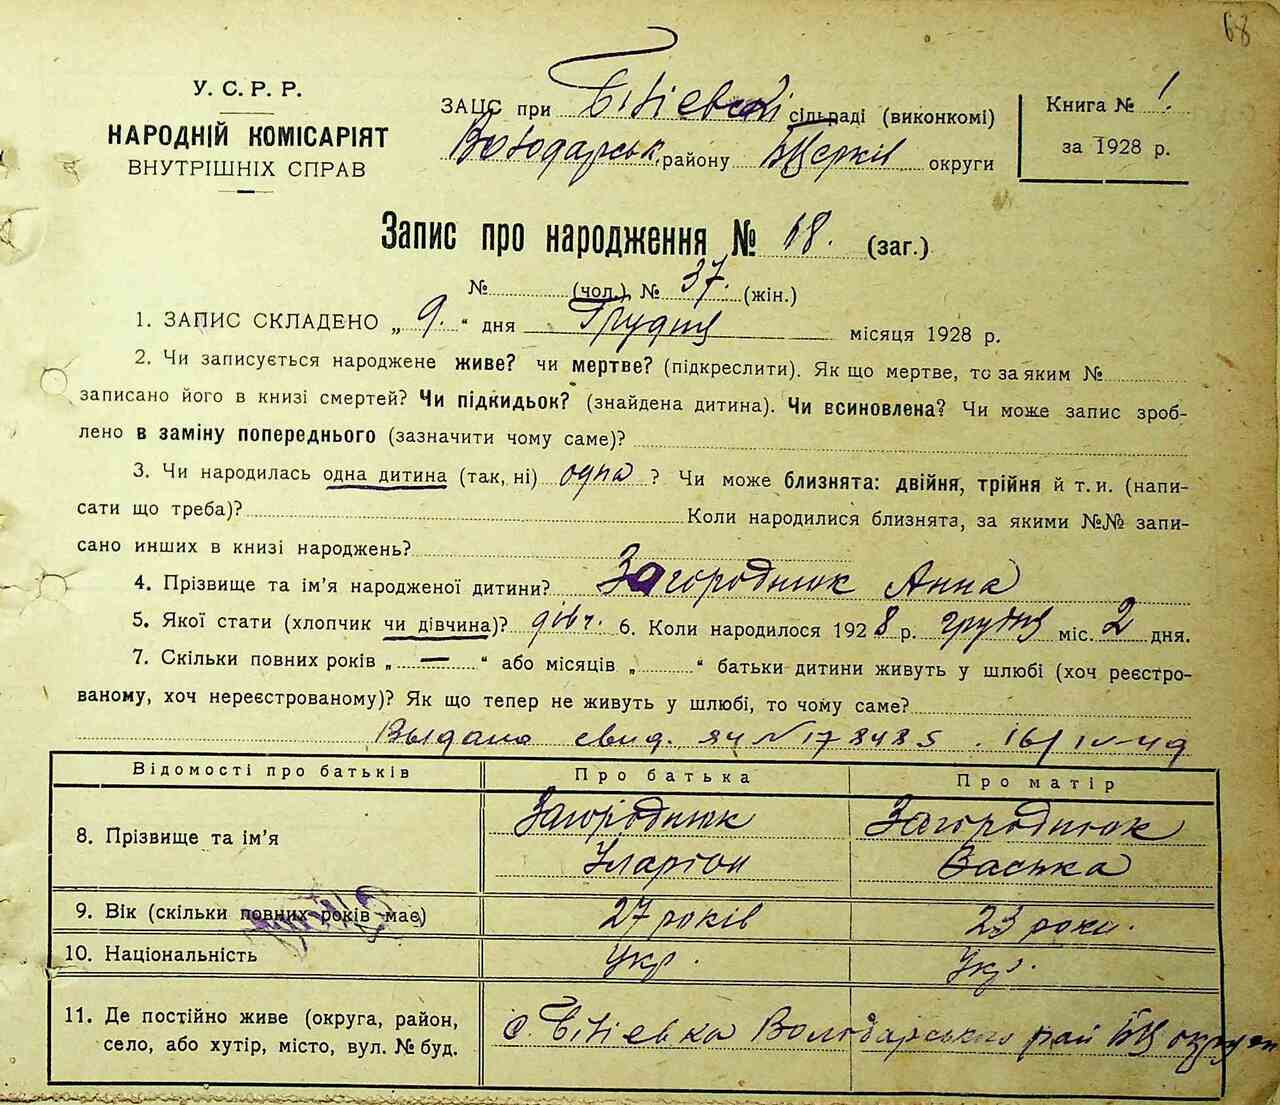 68
У. С. Р. Р.
НАРОДНІЙ КОМІСАРІЯТ
ВНУТРІШНІХ СПРАВ
ЗАЦС при сільраді (виконкомі)
Володарськ. району БЦерків округи
Книга № 1.
за 1928 р.
Запис про народження № 68. (заг.)
№ (чол.), № 37. (жін.)
1. ЗАПИС СКЛАДЕНО „ 9. “ дня Грудня місяця 1928 р.
2. Чи записується народжене живе? чи мертве? (підкреслити). Як що мертве, то за яким №
записано його в книзі смертей? Чи підкидьок? (знайдена дитина). Чи всиновлена? Чи може запис зроб-
лено в заміну попереднього (зазначити чому саме)?
3. Чи народилась одна дитина (так, ні) одна ? Чи може близнята: двійня, трійня й т. и. (напи-
сати що треба)? Коли народилися близнята, за якими №№ запи-
сано инших в книзі народжень?
4. Прізвище та ім’я народженої дитини? Загороднюк Анна
5. Якої стати (хлопчик чи дівчина)? дівч. 6. Коли народилося 1928 р. грудня міс. 2 дня.
7. Скільки повних років „ — “ або місяців „ “ батьки дитини живуть у шлюбі (хоч реєстро-
ваному, хоч нереєстрованому)? Як що тепер не живуть у шлюбі, то чому саме?
Выдано свид. ЯЧ № 178485 . 16/IV-49
Відомості про батьків Про батька Про матір
8. Прізвище та ім’я Загороднюк Іларіон Загороднюк Васька
9. Вік (скільки повних років має) 27 років 23 роки.
10. Національність Укр. Укр.
11. Де постійно живе (округа, район,
село, або хутір, місто, вул. № буд. с. Володарського рай БЦ округи